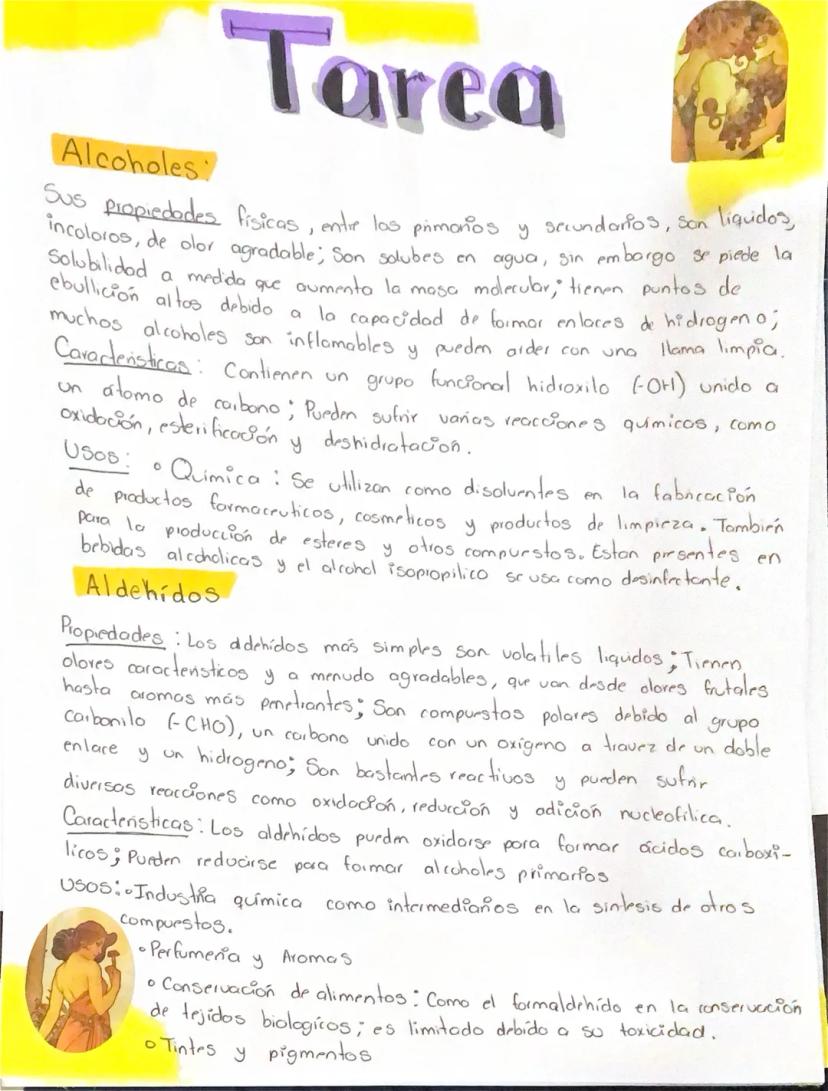 Tarea
Alcoholes:
Sus propiedades físicas, entre los primarios y secundarios, son líquidos,
incoloros, de olor agradable; Son solubles en agua, sin embargo se piede la
solubilidad a medida que aumento la masa molecular; tienen puntos de
ebullición altos debido a la capacidad de formar enlaces de hidrogeno;
muchos alcoholes son inflamables y pueden arder con una llama limpia.
Características: Contienen un grupo funcional hidroxilo (-OH) unido a
un átomo de carbono; Pueden sufrir varias reacciones químicos, como
oxidación, esterificación y deshidratacion.
Usos: • Química: Se utilizan como disolventes en la fabricación
de productos farmaceuticos, cosmeticos y productos de limpieza. También
para la producción de esteres y otros compuestos. Estan presentes en
bebidas alcoholicas y el alcohol isopropilico se usa como desinfectante.
Aldehídos
Propiedades: Los aldehídos más simples son volatiles liquidos; Tienen
olores característicos y a menudo agradables, que van desde olores frutales
hasta aromas más penetrantes; Son compuestos polares debido al grupo
carbonilo (-CHO), un carbono unido con un oxígeno a travez de un doble
enlace y un hidrogeno; Son bastantes reactivos y pueden sufrir
diversas reacciones como oxidación, reducción y adición nucleofílica.
Características: Los aldehídos pueden oxidarse para formar ácidos carboxi-
licos; Pueden reducirse para formar alcoholes primarios
Usos: • Industria química como intermediarios en la sintesis de otros
compuestos.
• Perfumería y Aromas
• Conservación de alimentos: Como el formaldehído en la conservación
de tejidos biologicos; es limitado debido a su toxicidad.
• Tintes y pigmentos